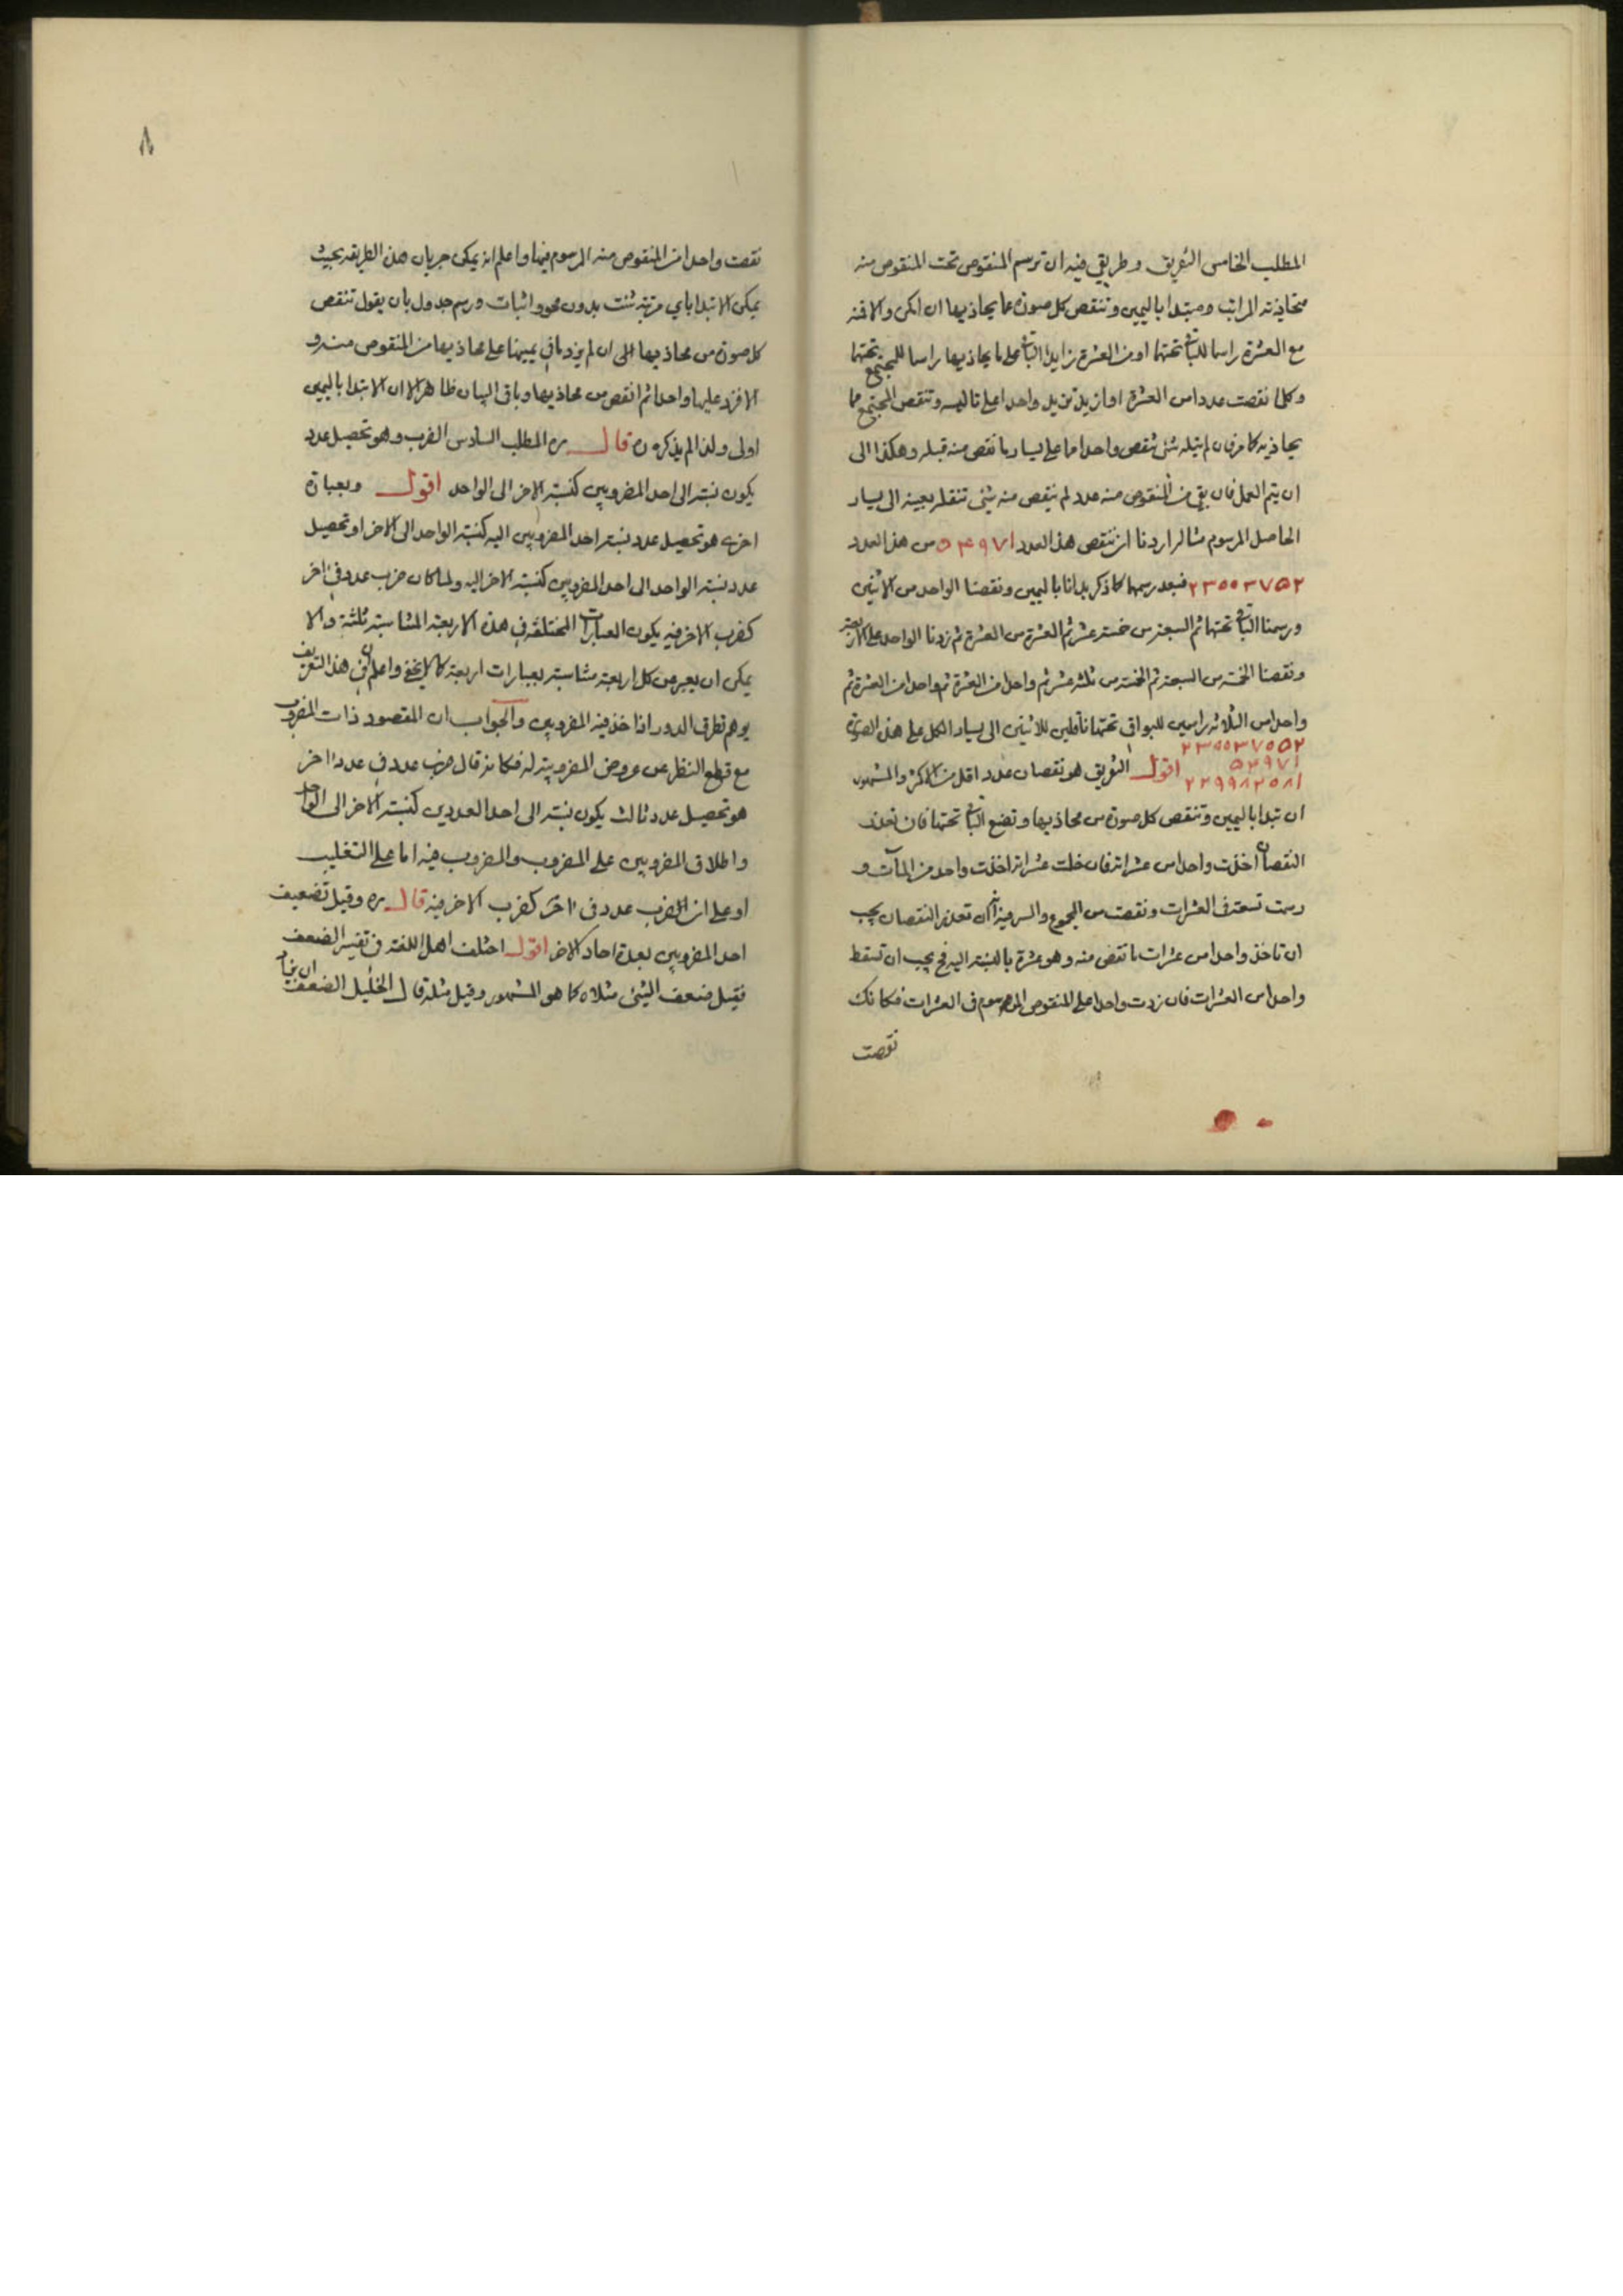 المطلب الخامس التفريق وطريقي فيه ان ترسم المنقوص تحت المنقوص منه
متحاذية المراتب ومبتدا باليمين وتنقص كل صورة مما يحاذيها ان امكن والا فمنه
مع العشرة راسما للباقي تحتها او من العشرة زايدا الباقي على ما يحاذيها راسما للمجتمع تحتها
وكلما نقصت عددا من العشرة او ازيد تزيد واحدا على تاليه وتنقص المجتمع مما
يحاذيه كما مر فان لم يتله شئ تنقص واحدا مما على يسار ما نقص منه قبله وهكذا الى
ان يتم العمل فان بقي من المنقوص منه عدد لم ينقص منه شئ تنقله بعينه الى يسار
الحاصل المرسوم مثاله اردنا ان ننقص هذا العدد ٥٤٩٧١ من هذا العدد
٢٣٠٠٣٧٥٢ فبعد رسمهما كما ذكر بدانا باليمين ونقصنا الواحد من الاثنين
ورسمنا الباقي تحتها ثم السبعة من خمسة عشر ثم العشرة من العشرة ثم زدنا الواحد على الاربعة
ونقصنا الخمسة من السبعة ثم الخمسة من ثلثة عشر ثم واحدا من العشرة ثم واحدا من العشرة ثم
واحدا من الثلاثة راسمين للبواقي تحتها ناقلين للاثنين الى يسار الكل على هذه الصورة
اقول التفريق هو نقصان عدد اقل من اكثر والمشهور
ان تبدا باليمين وتنقص كل صورة من محاذيها وتضع الباقي تحتها فان تعذر
النقصان اخذت واحدا من عشراته فان خلت عشراته اخذت واحد من المآت و
رسمت تسعة في العشرات ونقصت من المجموع والسر فيه انه ان تعذر النقصان يجب
ان تاخذ واحدا من عشرات ما تنقص منه وهو عشرة بالنسبة اليه فح يجب ان تسقط
واحدا من العشرات فان زدت واحدا على المنقوص المرسوم في العشرات فكانك
نقصت
٨
نقصت واحدا من المنقوص منه المرسوم فيها واعلم انه يمكن جريان هذه الطريقة بحيث
يمكن الابتدا باي مرتبة شئت بدون محو واثبات ورسم جدول بان يقول تنقص
كل صورة من محاذيها الى ان لم يزد ما في يمينها على محاذيها من المنقوص منه و
الا فزد عليها واحدا ثم انقص من محاذيها وباقي البيان ظاهر الا ان الابتدا باليمين
اولى ولذا لم يذكره قال ره المطلب السادس الضرب وهو تحصيل عدد
يكون نسبته الى احد المضروبين كنسبة الاخر الى الواحد اقول وبعبارة
اخرى هو تحصيل عدد نسبة احد المضروبين اليه كنسبة الواحد الى الاخر او تحصيل
عدد نسبة الواحد الى احد المضروبين كنسبة الاخر اليه ولما كان ضرب عدد في اخر
كضرب الاخر فيه يكون العبارات المختلفة في هذه الاربعة المتناسبة ثلثة والا
يمكن ان يعبر من كل اربعة متناسبة بعبارات اربعة كما لا يخفى واعلم ان في هذا التعريف
يوهم تطرق الدور اذا خذ فيه المضروبين والجواب ان المقصود ذات المضروب
مع قطع النظر عن عروض المضروبية له فكانه قال ضرب عدد في عدد اخر
هو تحصيل عدد ثالث يكون نسبته الى احد العددين كنسبة الاخر الى الواحد
واطلاق المضروبين على المضروب والمضروب فيه اما على التغليب
او على ان الضرب عدد في اخر كضرب الاخر فيه قال ره وقيل تضعيف
احد المضروبين بعدة احاد الاخر اقول اختلف اهل اللغة في تفسير الضعف
فقيل ضعف الشئ مثلاه كما هو المشهور وقيل مثله قال الخليل الضعف ان يزاد